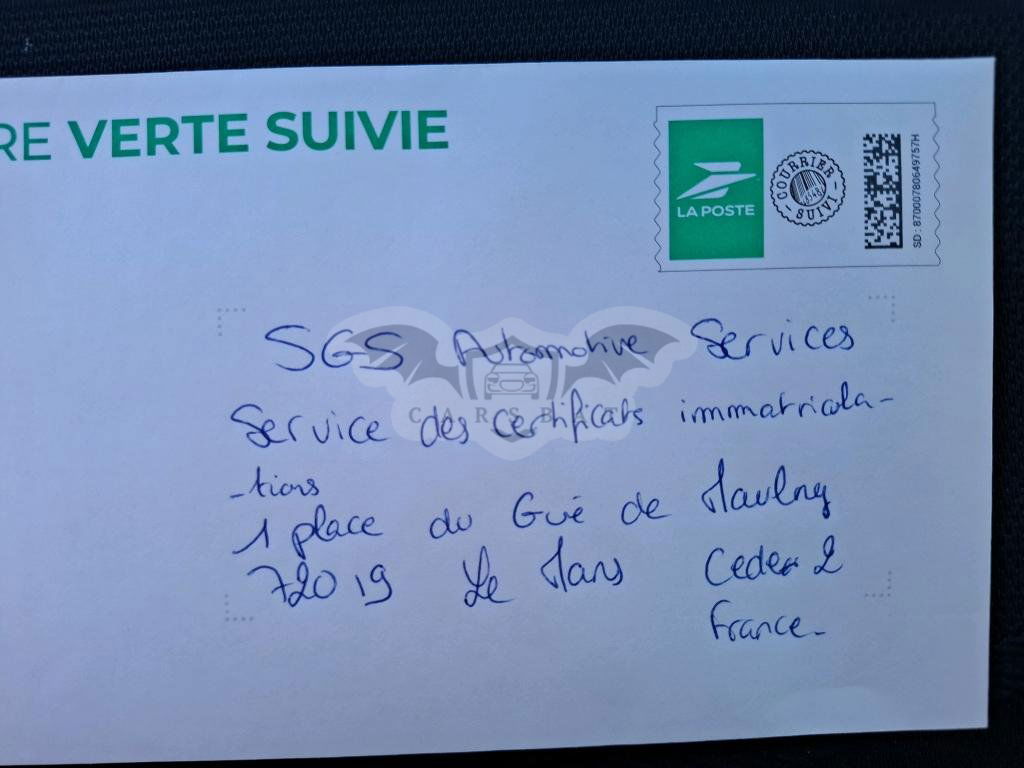 RE VERTE SUIVIE
LA POSTE
COURRIER
SUIVI
SD : 87000780649757H
SGS Automotive Services
Service des certificats immatricula-
-tions
1 place du Gué de Maulny
72019 Le Mans Cedex 2
France.
CARSBAT